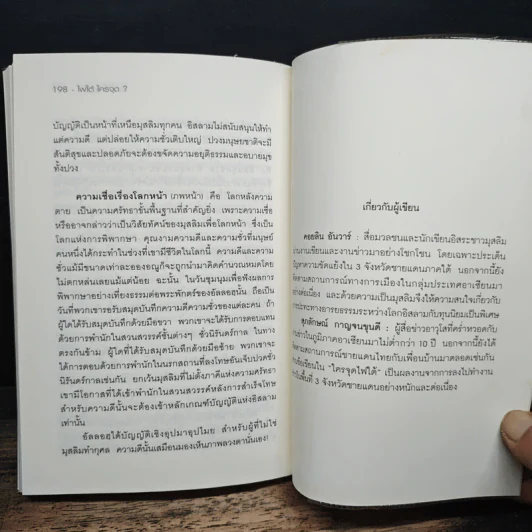 198 · ไฟใต้ ใครจุด ?
บัญญัติเป็นหน้าที่เหนือมุสลิมทุกคน อิสลามไม่สนับสนุนให้ทำ
แต่ความดี แต่ปล่อยให้ความชั่วเติบใหญ่ ปวงมนุษยชาติจะมี
สันติสุขและปลอดภัยจะต้องขจัดความอยุติธรรมและอบายมุข
ทั้งปวง
ความเชื่อเรื่องโลกหน้า (ภพหน้า) คือ โลกหลังความ
ตาย เป็นความศรัทธาขั้นพื้นฐานที่สำคัญยิ่ง เพราะความเชื่อ
หรืออาจกล่าวว่าเป็นวิสัยทัศน์ของมุสลิมเพื่อโลกหน้า ซึ่งเป็น
โลกแห่งการพิพากษา คุณงามความดีและความชั่วที่มนุษย์
คนหนึ่งได้กระทำในช่วงที่เขามีชีวิตในโลกนี้ ความดีและความ
ชั่วแม้มีขนาดเท่าละอองอณูก็จะถูกนำมาคิดคำนวณหมดโดย
ไม่ตกหล่นเลยแม้แต่น้อย ฉะนั้น ในวันชุมนุมเพื่อฟังผลการ
พิพากษาอย่างเที่ยงธรรมต่อพระพักตร์ของอัลลอฮ์นั้น ถือเป็น
วันที่พวกเขารอรับสมุดบันทึกความดีความชั่วของแต่ละคน ถ้า
ผู้ใดได้รับสมุดบันทึกด้วยมือขวา พวกเขาจะได้รับการตอบแทน
ด้วยการพำนักในสวนสวรรค์ชั้นต่างๆ ชั่วนิรันดร์กาล ในทาง
ตรงกันข้าม ผู้ใดที่ได้รับสมุดบันทึกด้วยมือซ้าย พวกเขาจะ
ได้การตอบด้วยการพำนักในนรกสถานที่ลงโทษอันเจ็บปวดชั่ว
นิรันดร์กาลเช่นกัน ยกเว้นมุสลิมที่ไม่ตั้งภาคีแห่งความศรัทธา
เขามีโอกาสที่ได้เข้าพำนักในสวนสวรรค์หลังการสำเร็จโทษ
สำหรับความดีนั้นจะต้องเข้าหลักเกณฑ์บัญญัติแห่งอิสลาม
เท่านั้น
อัลลอฮ์ได้บัญญัติเชิงอุปมาอุปไมย สำหรับผู้ที่ไม่ใช่
มุสลิมทำกุศล ความดีนั้นเสมือนมองเห็นภาพลวงตานั่นเอง!
เกี่ยวกับผู้เขียน
อันวาร์ : สื่อมวลชนและนักเขียนอิสระชาวมุสลิม
งานเขียนและงานข่าวมาอย่างโชกโชน โดยเฉพาะประเด็น
ปัญหาความขัดแย้งใน 3 จังหวัดชายแดนภาคใต้ นอกจากนี้ยัง
ติดตามสถานการณ์ทางการเมืองในกลุ่มประเทศอาเซียนมา
อย่างต่อเนื่อง และด้วยความเป็นมุสลิมจึงให้ความสนใจเกี่ยวกับ
ปะทะทางอารยธรรมระหว่างโลกอิสลามกับทุนนิยมเป็นพิเศษ
ศุภลักษณ์ กาญจนขุนดี : ผู้สื่อข่าวอาวุโสที่คร่ำหวอดกับ
ข่าวในภูมิภาคอาเซียนมาไม่ต่ำกว่า 10 ปี นอกจากนี้ยังได้
ติดตามสถานการณ์ชายแดนไทยกับเพื่อนบ้านมาตลอดเช่นกัน
เขียนใน "ใครจุดไฟใต้" เป็นผลงานจากการลงไปทำงาน
ในพื้นที่ 3 จังหวัดชายแดนอย่างหนักและต่อเนื่อง